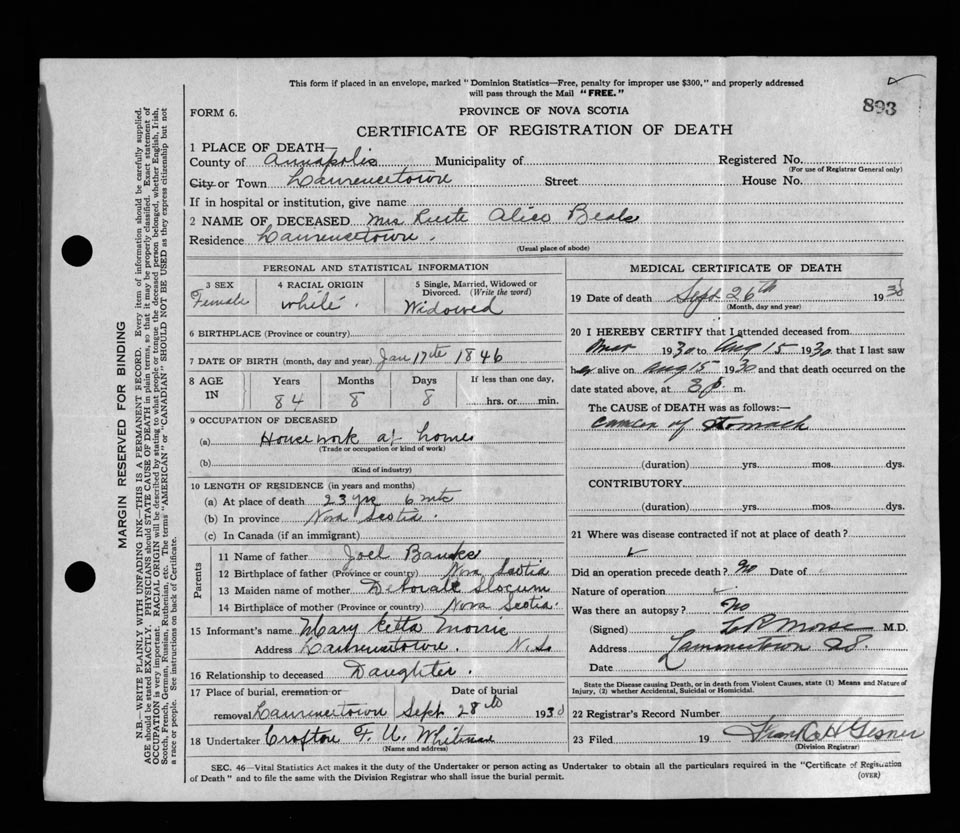 This form if placed in an envelope, marked "Dominion Statistics—Free, penalty for improper use $300," and properly addressed
will pass through the Mail "FREE."
893
FORM 6.
PROVINCE OF NOVA SCOTIA
CERTIFICATE OF REGISTRATION OF DEATH
1 PLACE OF DEATH—
County of Annapolis Municipality of Registered No.
(For use of Registrar General only)
City or Town Lawrencetown Street House No.
If in hospital or institution, give name
2 NAME OF DECEASED Mrs Alice Beals
Residence Lawrencetown.
(Usual place of abode)
PERSONAL AND STATISTICAL INFORMATION
3 SEX 4 RACIAL ORIGIN 5 Single, Married, Widowed or
Divorced. (Write the word)
Female white. Widowed
6 BIRTHPLACE (Province or country)
7 DATE OF BIRTH (month, day and year) Jan 17th 1846
8 AGE IN Years Months Days If less than one day,
84 8 8 hrs. or min.
9 OCCUPATION OF DECEASED
(a) Housework at home
(Trade or occupation or kind of work)
(b)
(Kind of industry)
10 LENGTH OF RESIDENCE (in years and months)
(a) At place of death 23 yrs 6 mts
(b) In province Nova Scotia.
(c) In Canada (if an immigrant)
Parents
11 Name of father Joel Banks
12 Birthplace of father (Province or country) Nova Scotia
13 Maiden name of mother Deborah Slocum
14 Birthplace of mother (Province or country) Nova Scotia.
15 Informant's name Mary Etta Morris
Address Lawrencetown. N.S.
16 Relationship to deceased Daughter.
17 Place of burial, cremation or Date of burial
removal Lawrencetown Sept 28th 1930
18 Undertaker Crofton F. U. Whitman
(Name and address)
MEDICAL CERTIFICATE OF DEATH
19 Date of death Sept 26th 1930
(Month, day and year)
20 I HEREBY CERTIFY that I attended deceased from
Mar 1930 to Aug 15 1930 that I last saw
her alive on Aug 15 1930 and that death occurred on the
date stated above, at 8 p. m.
The CAUSE of DEATH was as follows:—
Cancer of Stomach
(duration) yrs. mos. dys.
CONTRIBUTORY
(duration) yrs. mos. dys.
21 Where was disease contracted if not at place of death?
Did an operation precede death? No Date of
Nature of operation
Was there an autopsy? No
(Signed) Morse M.D.
Address Lawrencetown NS.
Date
State the Disease causing Death, or in death from Violent Causes, state (1) Means and Nature of
Injury, (2) whether Accidental, Suicidal or Homicidal.
22 Registrar's Record Number
23 Filed 19 Frank H Gesner
(Division Registrar)
SEC. 46—Vital Statistics Act makes it the duty of the Undertaker or person acting as Undertaker to obtain all the particulars required in the "Certificate of Registration
of Death" and to file the same with the Division Registrar who shall issue the burial permit.
(OVER)
MARGIN RESERVED FOR BINDING
N.B.—WRITE PLAINLY WITH UNFADING INK—THIS IS A PERMANENT RECORD. Every item of information should be carefully supplied.
AGE should be stated EXACTLY. PHYSICIANS should STATE CAUSE OF DEATH in plain terms, so that it may be properly classified. Exact statement of
OCCUPATION is very important. RACIAL ORIGIN will be described by stating to what people or tongue the deceased person belonged, whether English, Irish,
Scotch, French, German, Russian, Ruthenian, etc. The terms "AMERICAN" or "CANADIAN" SHOULD NOT BE USED as they express citizenship but not
a race or people. See instructions on back of Certificate.